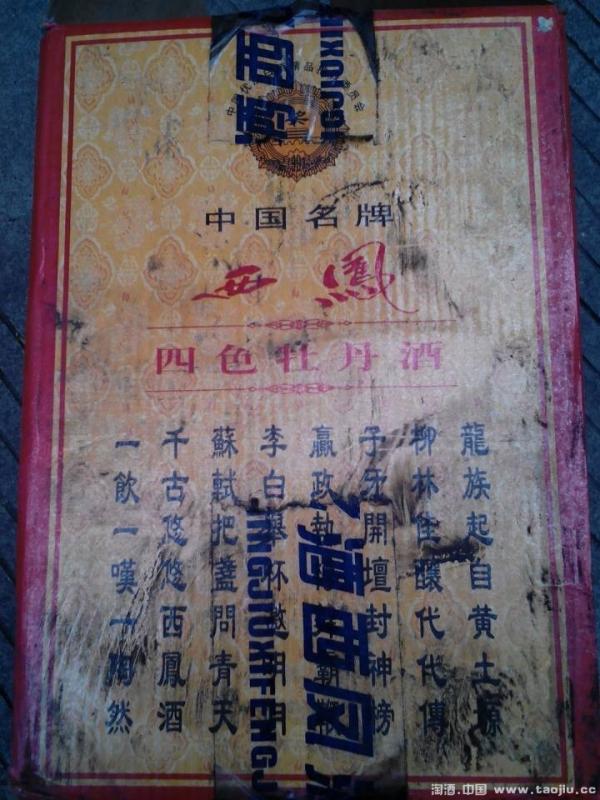 中国名牌
西鳳
四色牡丹酒
龍族起自黄土塬
柳林佳釀代代傳
子牙開壇封神榜
嬴政執
李白舉杯邀明月
蘇軾把盞問青天
千古悠悠西鳳酒
一飲一嘆一陶然
酒西鳳
JINGJIUXIFENGJ
淘酒.中国 www.taojiu.cc